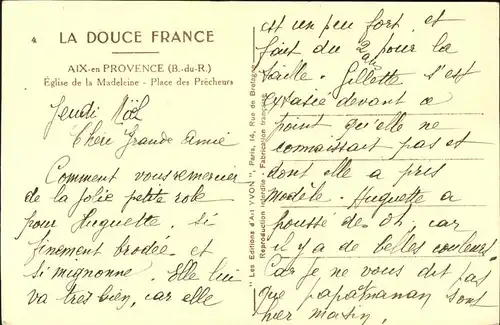 4 LA DOUCE FRANCE
AIX-en PROVENCE (B.-du-R.)
Église de la Madeleine - Place des Prêcheurs
Jeudi Noël
Chère Grande Amie
Comment vous remercier
de la jolie petite robe
pour Huguette, si
finement brodée et
si mignonne. Elle lui
va très bien, car elle
"Les Editions d'Art YVON", Paris, 14, Rue de Bretagne
Reproduction interdite - Fabrication française
est un peu fort et
fait du 2 ans pour la
taille. Gillette s'est
extasiée devant ce
point qu'elle ne
connaissait pas et
dont elle a pris
modèle. Huguette a
poussé des oh, car
il y a de belles couleurs
Car je ne vous dit pas
que papa maman sont
hier